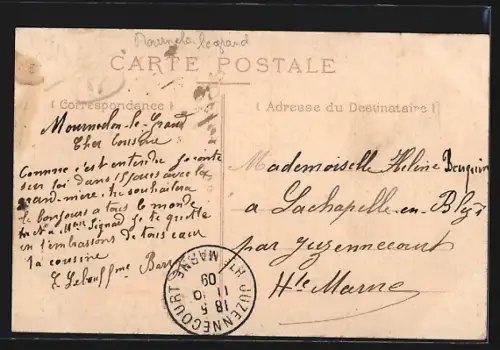 Mourmelon le grand
CARTE POSTALE
( Correspondance )
( Adresse du Destinataire )
Mourmelon-le-Grand
Cher Cousine
Comme c'est entendu je conte
sur toi dans 15 jours avec la
grand-mère, tu souhaitera
le bonjours a tous le monde
et a Mme Signard je te quitte
en t'embrassons de tous cœur
ta cousine
Mademoiselle Helène
à Lachapelle-en-Blézy
par Juzennecourt
Hte Marne
JUZENNECOURT
HTE MARNE
18 5
11 10
09